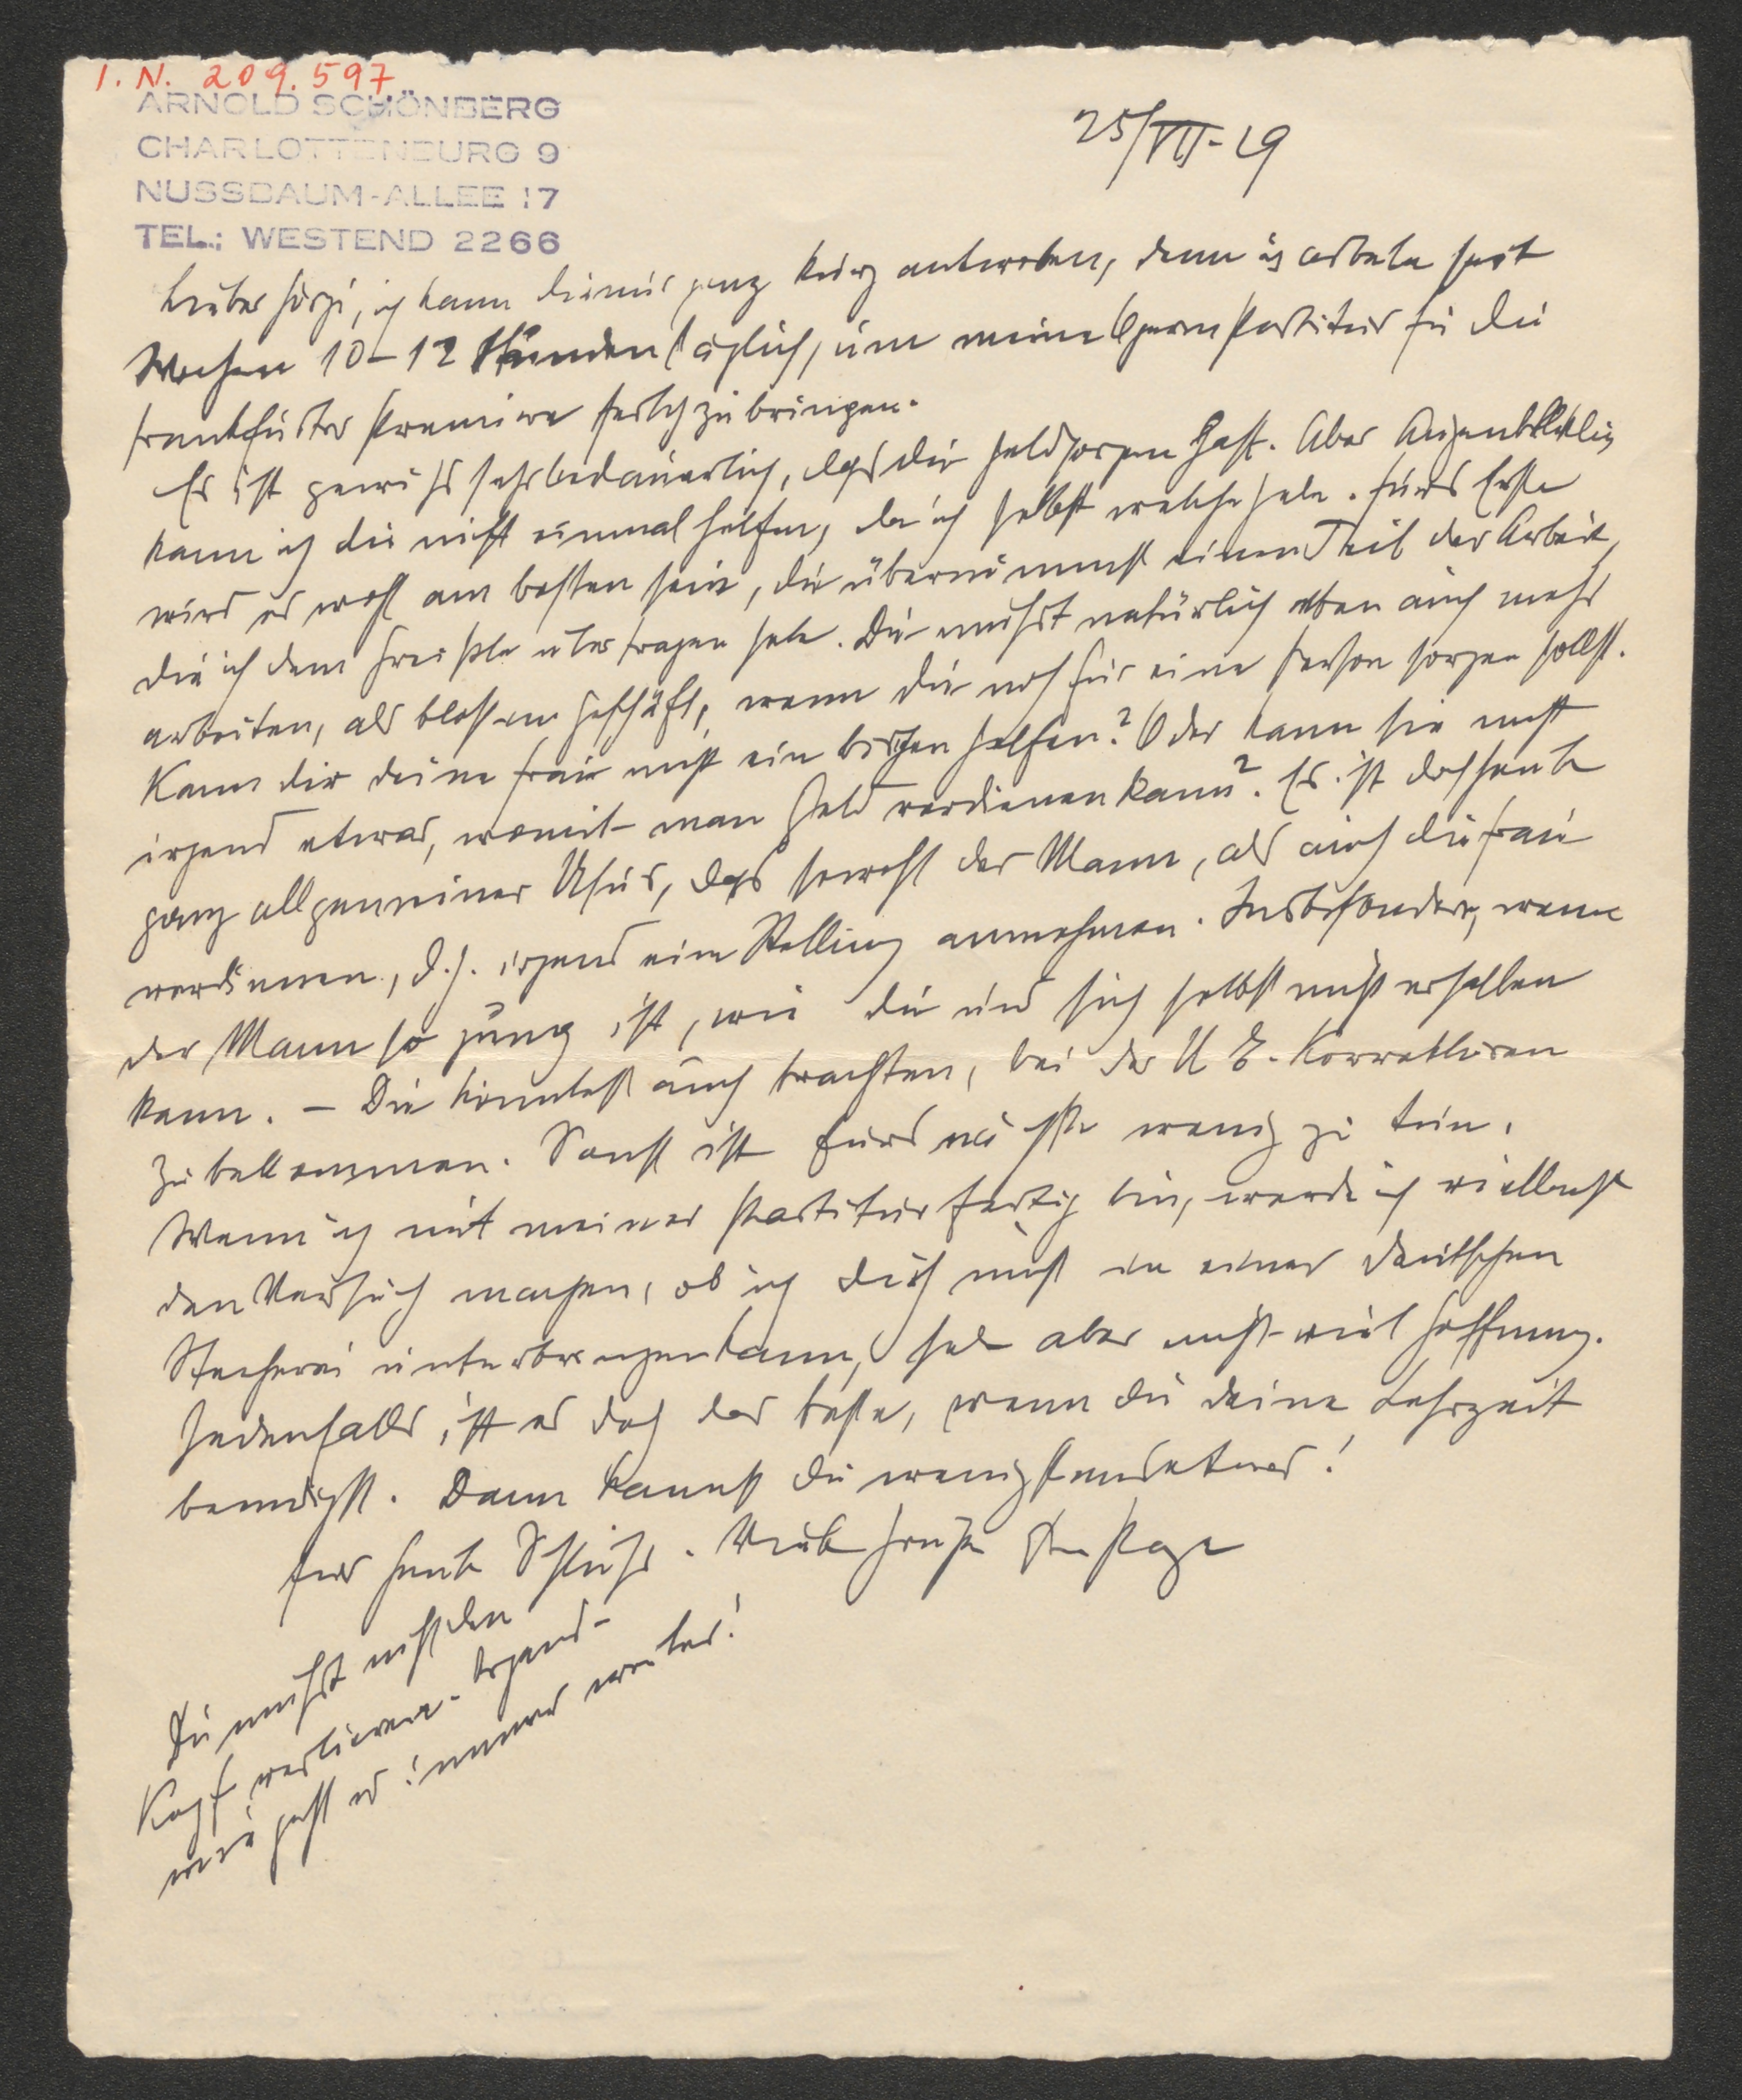 I.N. 209.597
ARNOLD SCHÖNBERG
CHARLOTTENBURG 9
NUSSBAUM-ALLEE 17
TEL.: WESTEND 2266
25/VII-29
Lieber Görgi, ich kann dir nur ganz kurz antworten, denn ich arbeite seit
Wochen 10–12 Stunden täglich, um meine Opernpartitur für die
Frankfurter Premiere fertigzubringen.
Es ist gewiss sehr bedauerlich, dass du Geldsorgen hast. Aber Augenblicklich
kann ich dir nicht einmal helfen, da ich selbst welche habe. Fürs Erste
wird es wohl am besten sein, du übernimmst einen Teil der Arbeit,
die ich dem Greissle übertragen habe. Du musst natürlich eben auch mehr
arbeiten, als bloss im Geschäft, wenn du noch für eine Person sorgen sollst.
Kann dir deine Frau nicht ein bischen helfen? Oder kann sie nicht
irgend etwas, womit man Geld verdienen kann? Es ist doch heute
ganz allgemeiner Usus, dass sowohl der Mann, als auch die Frau
verdienen, d.h. irgend eine Stellung annehmen. Insbesondere, wenn
der Mann so jung ist, wie du und sich selbst nicht erhalten
kann. – Du könntest auch trachten, bei der U.E. Korrekturen
zu bekommen. Sonst ist fürs nächste wenig zu tun.
Wenn ich mit meiner Partitur fertig bin, werde ich vielleicht
den Versuch machen, ob ich dich nicht in einer deutschen
Stecherei unterbringen kann, habe aber nicht viel Hoffnung.
Jedenfalls ist es doch das beste, wenn du deine Lehrzeit
beendigst. Dann kannst du wenigstens etwas!
Für heute Schluss. Viele Grüsse Papa
Du musst nicht den
Kopf verlieren. Irgend-
wie geht es immer weiter!